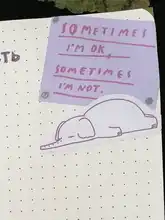 SOMETIMES
I'M OK,
SOMETIMES
I'M NOT.
ТЬ